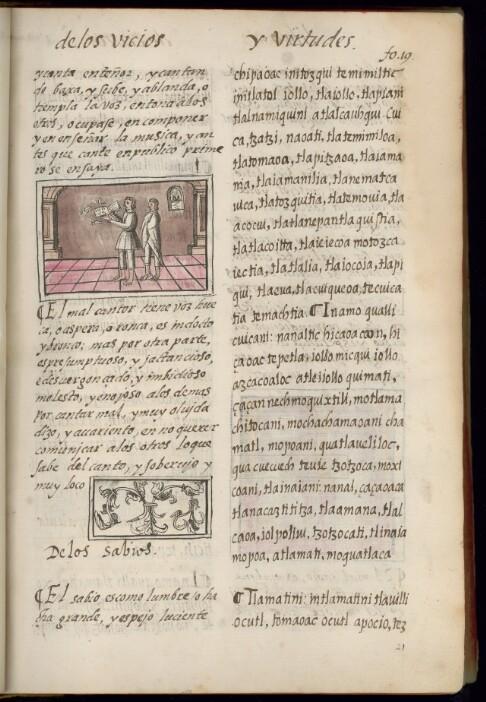 de los vicios
y virtudes.
fo. 19
y canta en tenor, y cantan
do baxa, y sube, y ablanda, o
templa la voz, entona a los
otros, ocupase, en componer
y en enseñar la musica, y an
tes que cante en publico prime
ro se ensaya.
¶El mal cantor tiene voz hue
ca, o aspera, o ronca, es indocto
y bronco, mas por otra parte,
es presumptuoso, y jactancioso,
e desvergonçado, y imbidioso
molesto, y enojoso a los demas
por cantar mal, y muy olvida
dizo, y avariento, en no querer
comunicar a los otros lo que
sabe del canto, y sobervio y
muy loco
De los sabios.
¶El sabio es como lumbre o ha
cha grande, y espejo luciente
chipaoac initozqui temimiltic
initlatol iollo, tlaiollo, tlapiani
tlalnamiquini atlalcauhqui. Cui
ca, tzatzi, naoati, tlatemimiloa,
tlatomaoa, tlapitzaoa, tlaiama
nia, tlaiamanilia, tlanematca
uica, tlatozquitia, tlatemouia, tla
acocui, tlatlanepantlaquistia,
tlatlacoitta, tlaieiecoa motozca
iectia, tlatlalia, tlaiocoia, tlapi
qui, tlaeua, tlacuiqueoa, tecuica
tia temachtia. ¶In amo qualli
cuicani: nanaltic hicaoacaon, hi
çaoac tepetla, iollo micqui iollo
azcacoaloc atle iiollo quimati,
çaçan nechmoquixtili, motlama
chitocani, mochachamaoani cha
matl, mopoani, quatlaueliloc,
qua
tzotzoca, moxi
coani, tlainaiani: nanal, caçaoaca
tlanacaztititza, tlaamana, tlal
caoa, iolpoliui, tzotzocati, tlinaia
mopoa, atlamati, moquatlaca
¶Tlamatini: in tlamatini tlauilli
ocutl, tomaoac ocutl apocio, tez
21